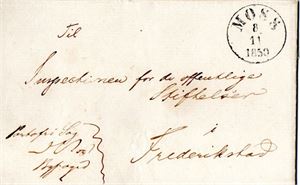 MOSS
8
11
1859
Til
Inspectionen for de offentlige
Stiftelser
i
Frederikstad
Portofri Sag